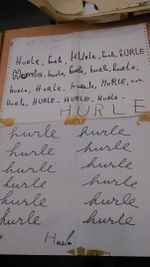 Hurle, hurle, HUrle, hurle, HURLE
Hurle, hurle, hurle, hurle, Hurle,
hurle, HuRLe, Hurle, HuRLE,
Hurle, HURLE - HURLE, Hurle -
HURLE
hurle hurle
hurle hurle
hurle hurle
hurle hurle
hurle hurle
hurle hurle
Hurle